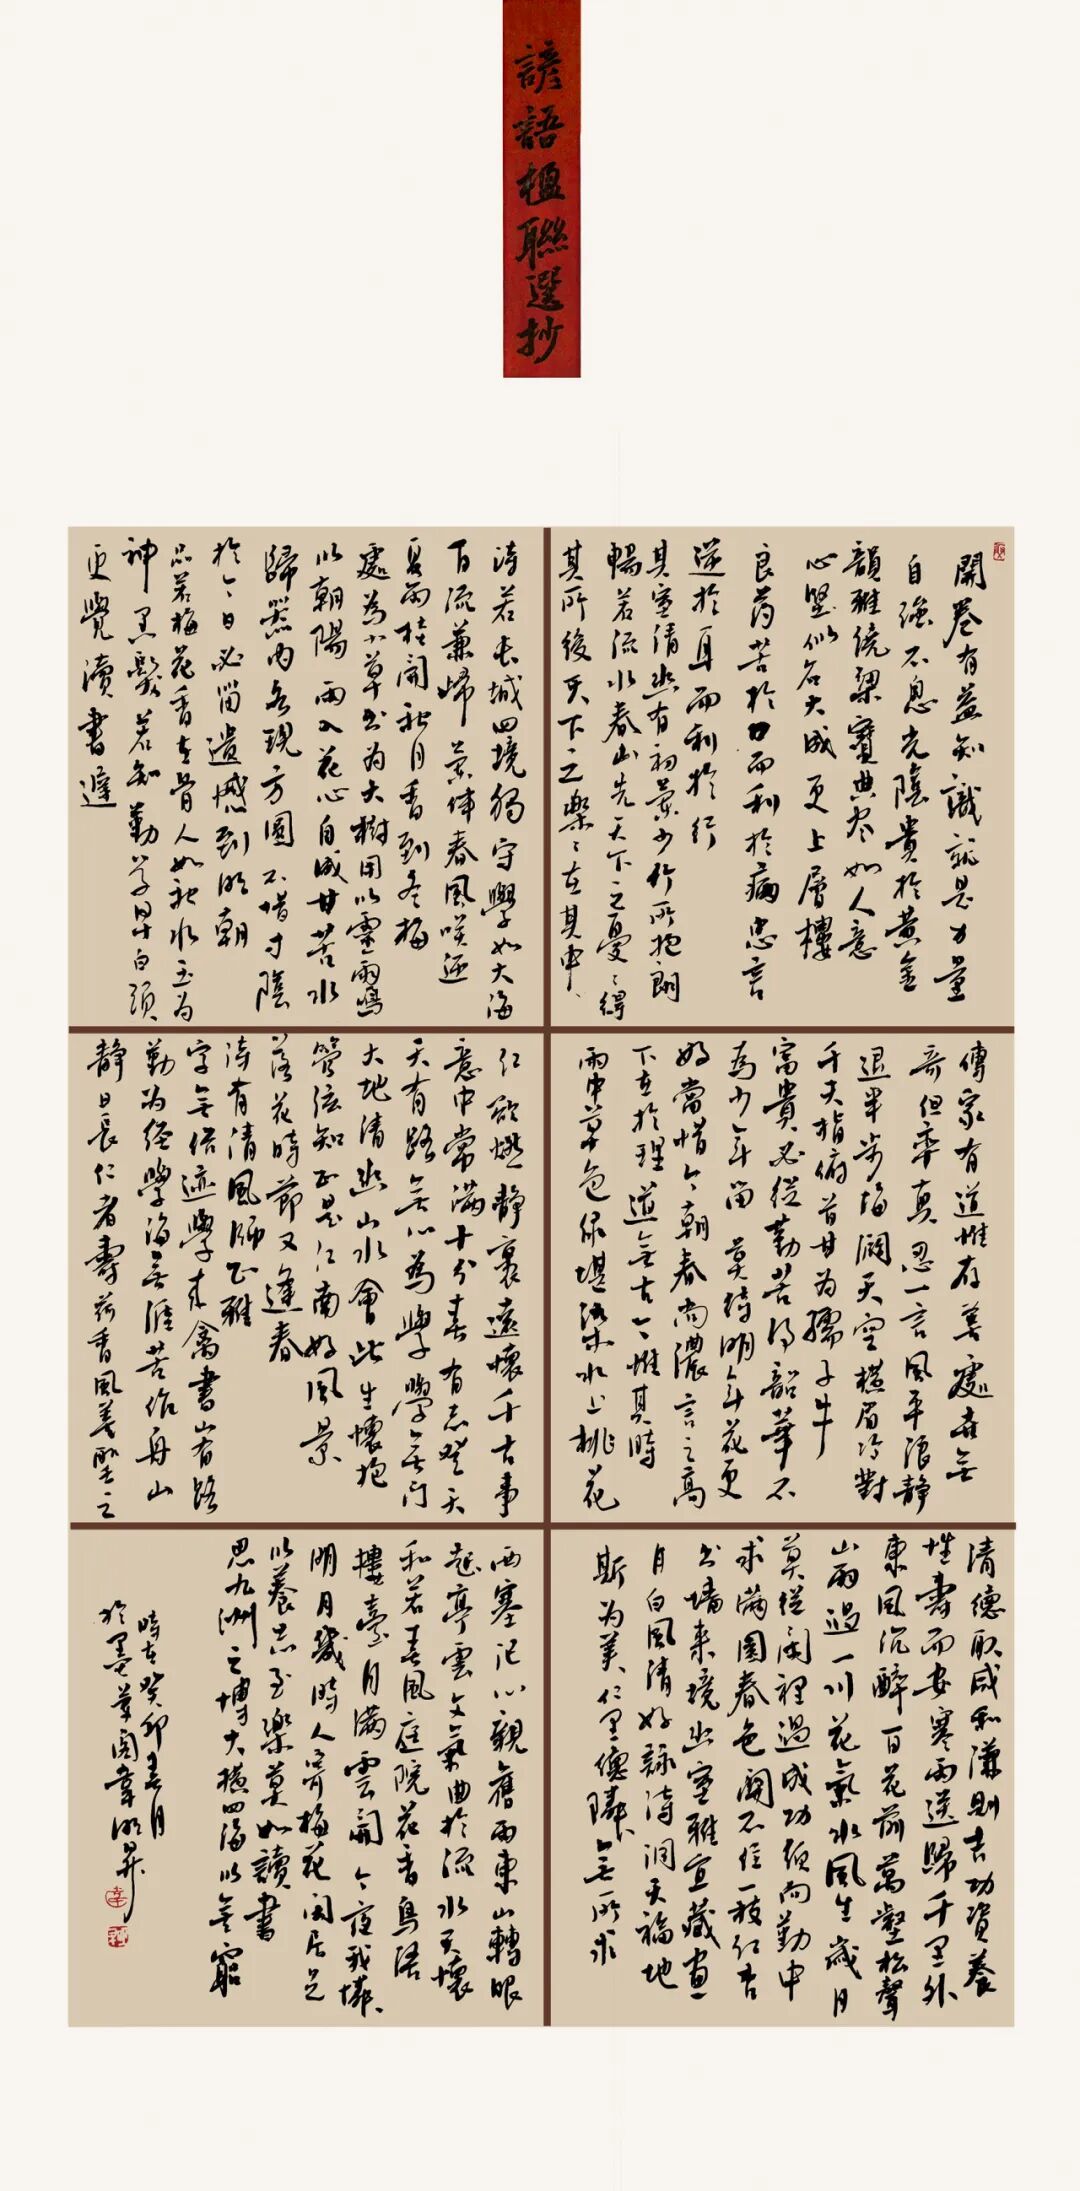 諺語楹聯選抄
開卷有益知識就是力量
自強不息光陰貴於黃金
韻雅繞梁寶典盡如人意
心堅似石大成更上層樓
良药苦於口而利於病忠言
逆於耳而利於行
其室清幽有初蘭少竹所抱朗
暢若流水春山先天下之憂〻得
其所後天下之樂〻在其中
詩若長城四境獨守學如大海
百流兼歸蘭味春風咲逐
夏雨桂開秋月香到冬梅
處为小草出为大樹用以靈雨鳴
以朝陽雨入花心自成甘苦水
歸器内各現方圓不惜寸陰
於今日必留遗憾到明朝
品若梅花香在骨人如秋水玉为
神黑髮若知勤學早白頭
更覺讀書遲
傳家有道惟存善處世無
奇但率真忍一言風平浪静
退半步海濶天空橫眉冷對
千夫指俯首甘为孺子牛
富貴必從勤苦得韶華不
为少年留莫待明年花更
好當惜今朝春尚濃言之高
下在於理道無古今惟其時
雨中草色綠堪染水上桃花
红欲燃静裏遠懷千古事
意中常滿十分春有志登天
天有路無心为學學無门
大地清幽山水會此生懷抱
管弦知正是江南好風景
落花時節又逢春
詩有清風師正雅
字無俗迹學來禽書山有路
勤为徑學海無涯苦作舟山
静日長仁者壽荷香風善聖之
清德取咸和谦則吉功資養
性壽而安寒雨送歸千里外
東風沉醉百花前萬壑松聲
山雨過一川花氣水風生歲月
莫從閑裡過成功須向勤中
求滿園春色關不住一枝红杏
出墻来境幽室雅宜藏畫
月白風清好詠詩洞天福地
斯为美仁里德隣無所求
西塞記心觀舊雨東山轉眼
起亭雲文氣曲於流水天懷
和若春風庭院花香鳥語
樓臺月滿雲開今夜我
明月幾時人脊梅花閑居足
以養志至樂莫如讀書
思九洲之博大橫四海以無窮
時在癸卯春月
於墨草閣韋